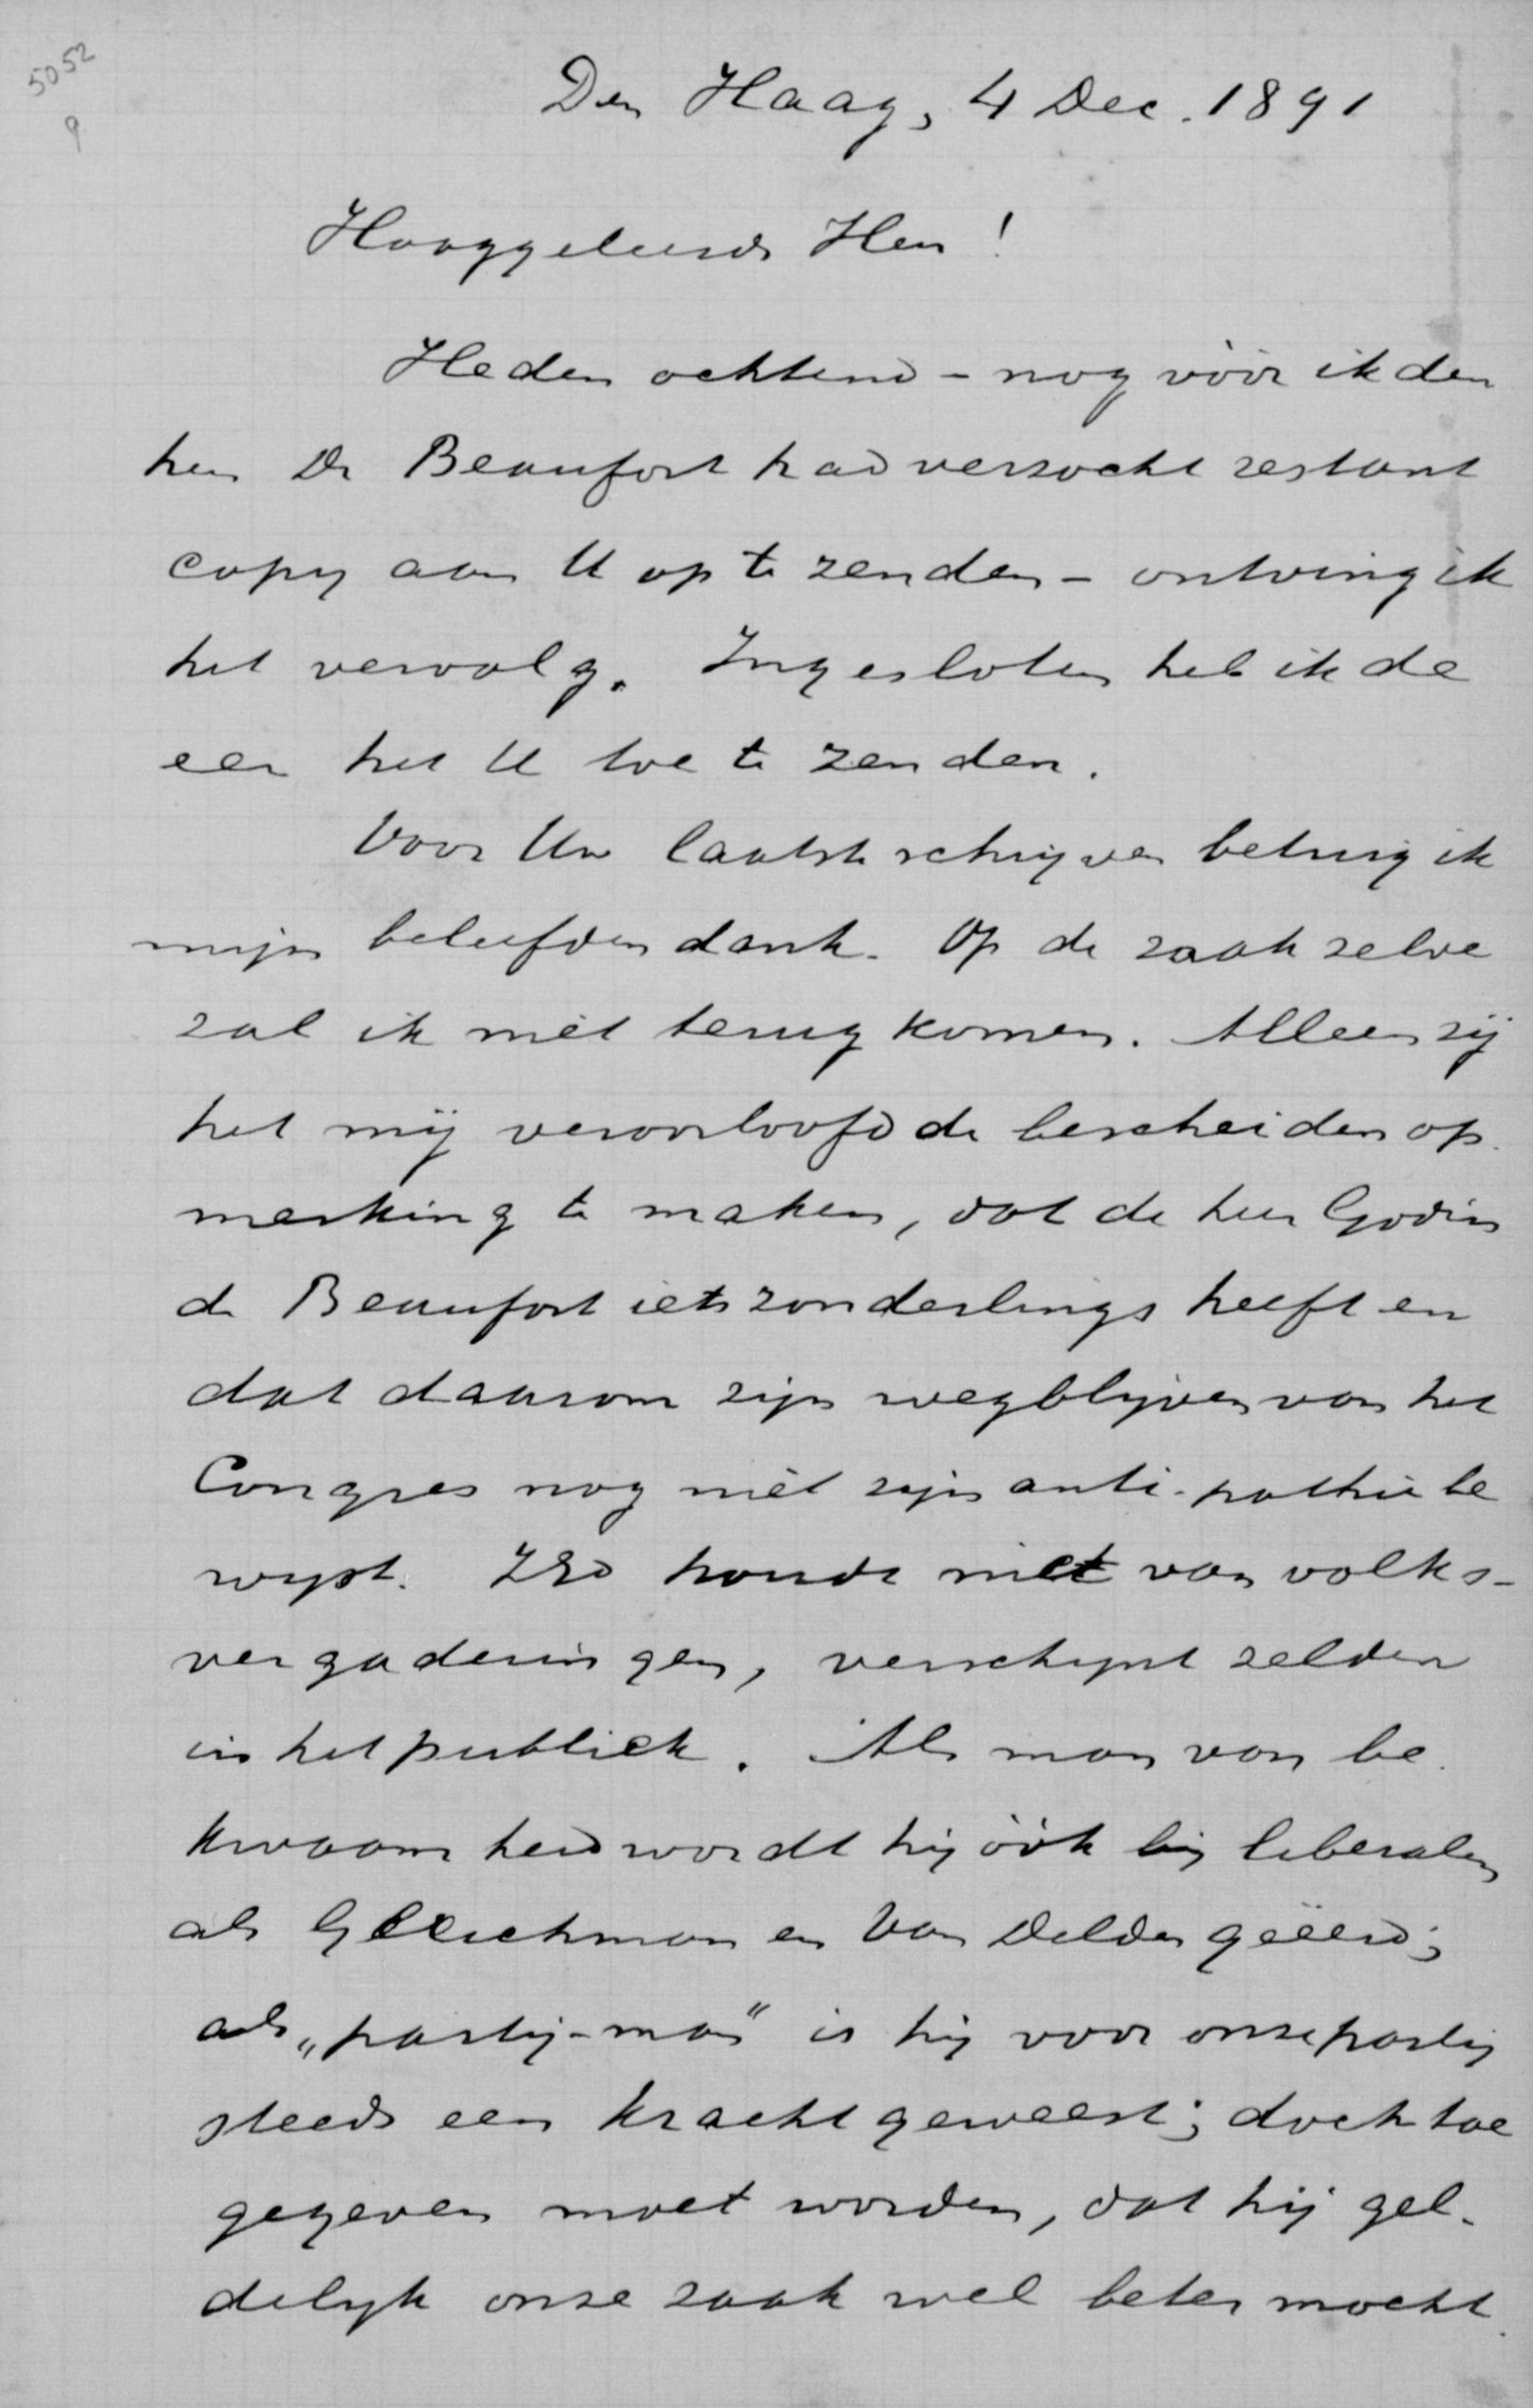 5052
9
Den Haag, 4 Dec. 1891
Hooggeleerde Heer!
Heden ochtend - nog vóór ik den
heer De Beaufort had verzocht restant
copy aan U op te zenden - ontving ik
het vervolg. Ingesloten heb ik de
eer het U toe te zenden.
Voor Uw laatste schrijven betuig ik
mijn beleefden dank. Op de zaak zelve
zal ik niet terug komen. Alleen zij
het mij veroorloofd de bescheiden op-
merking te maken, dat de heer Godin
de Beaufort iets zonderlings heeft en
dat daarom zijn wegblijven van het
Congres nog niet zijn anti-pathie be
wijst. ZEd houdt niet van volks-
vergaderingen, verschijnt zelden
in het publiek. Als man van be-
kwaamheid wordt hij óók bij liberalen
als Gleichman en Van Delden geëerd;
als "partij-man" is hij voor onze partij
steeds een kracht geweest; doch toe
gegeven moet worden, dat hij gel-
delijk onze zaak wel beter mocht